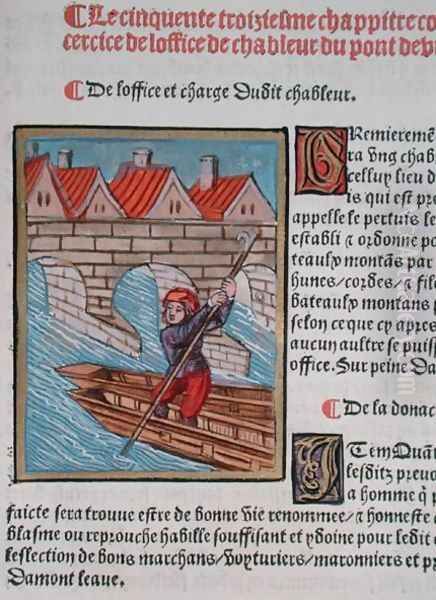 ¶Le cinquente troiziesme chappitre co
cercice de loffice de chableur du pont de
¶De loffice et charge Dudit chableur.
PRemieremē
ra vng chab
celluy lieu d
is qui est pre
appelle le pertuis le
establi ⁊ ordonne po
teaulx montās par
hunes/cordes/⁊ file
bateaulx montans p
selon ce que cy apres
aucun aultre se puis
office. Sur peine Da
¶De la donac
ITem Quāt
lesditz preuo
a homme q̄ p
faicte sera trouue estre de bonne vie renommee/⁊ honneste
blasme ou reprouche habille souffisant et ydoine pour ledit
leslection de bons marchans/voyturiers/maronniers et pr
Damont leaue.